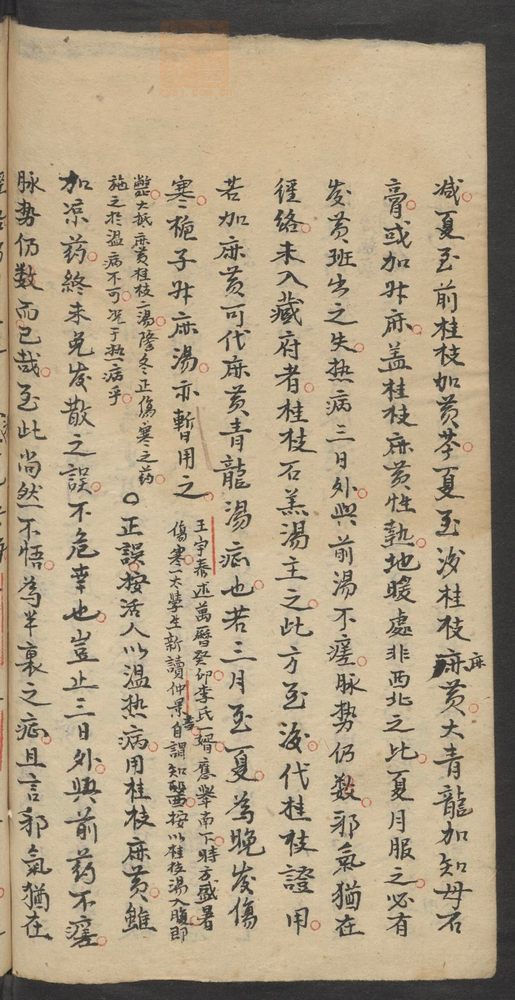 减夏至前桂枝加黄芩夏至後桂枝麻黄大青龍加知母石
膏或加升麻盖桂枝麻黄性熱地暖處非西北之比夏月服之必有
发黄班出之失热病三日外與前湯不瘥脉势仍数邪氣猶在
經絡未入藏府者桂枝石羔湯主之此方至後代桂枝證用
若加麻黄可代麻黄青龍湯症也若三月至夏為晚发傷
寒栀子升麻湯亦暫用之
王宇泰述萬曆癸卯李氏一婿應舉南下時方盛暑
傷寒一太學生新讀仲景書自謂知醫投以桂枝湯入腹即
斃大抵麻黄桂枝湯隆冬正傷寒之药
施之於温病不可况于热病乎
○正誤按活人以温热病用桂枝麻黄雖
加凉药終未免发散之誤不危幸也豈止三日外與前药不瘥
脉势仍数而已哉至此尚然不悟為半裏之症且言邪氣猶在